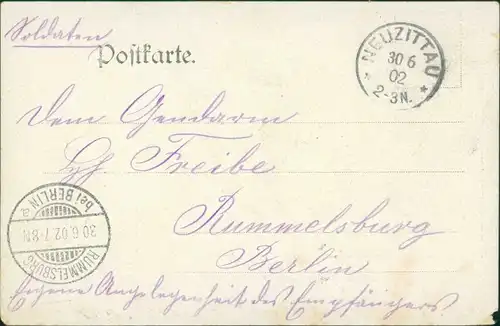 Soldaten
Postkarte.
* NEUZITTAU *
30 6
02
2-3N.
Dem Gendarm
Freibe
Rummelsburg
Berlin
RUMMELSBURG
30.6.02.7-8N
bei BERLIN a
Eigene Angelegenheit des Empfängers